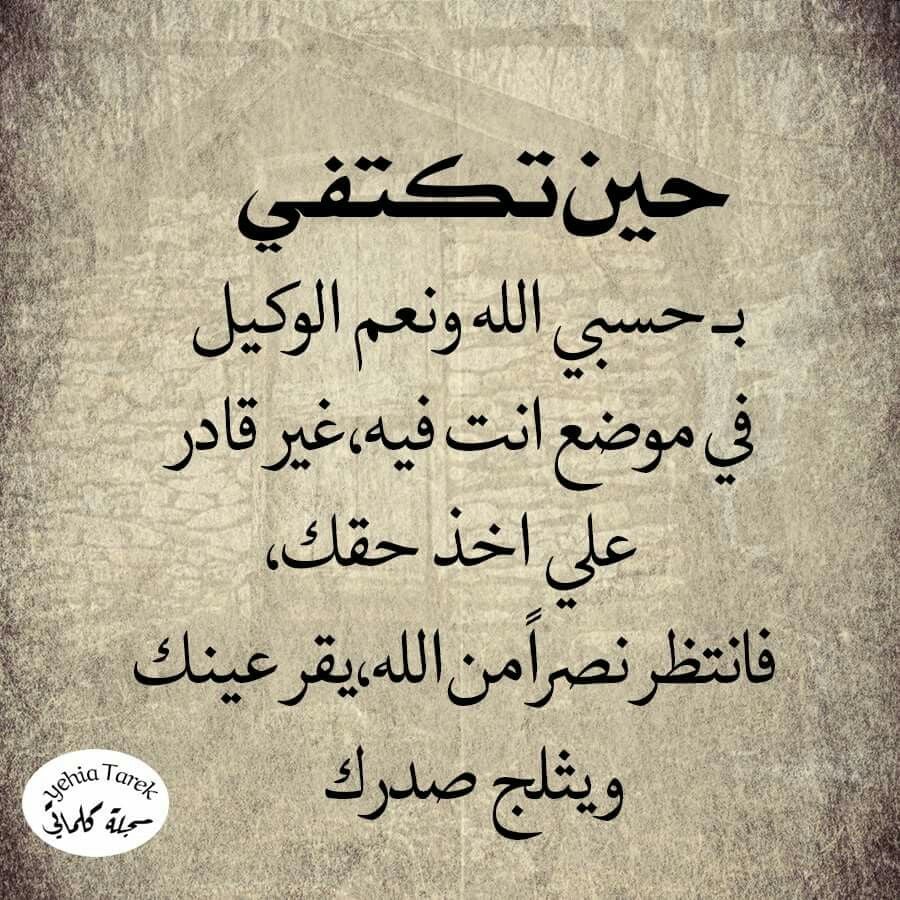 حين تكتفي
بـ حسبي الله ونعم الوكيل
في موضع انت فيه،غير قادر
علي اخذ حقك،
فانتظر نصراً من الله،يقر عينك
ويثلج صدرك
Yehia Tarek
مجلة كلماتي